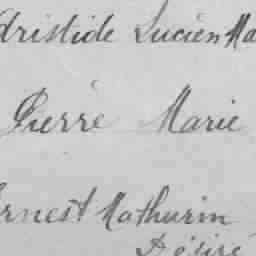 Aristide Lucien Ma
Pierre Marie
Ernest Mathurin
Désiré